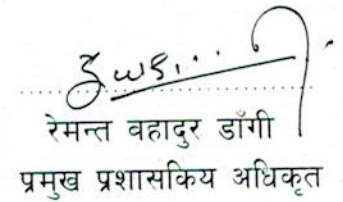 रेमन्त वहादुर डाँगी
प्रमुख प्रशासकिय अधिकृत